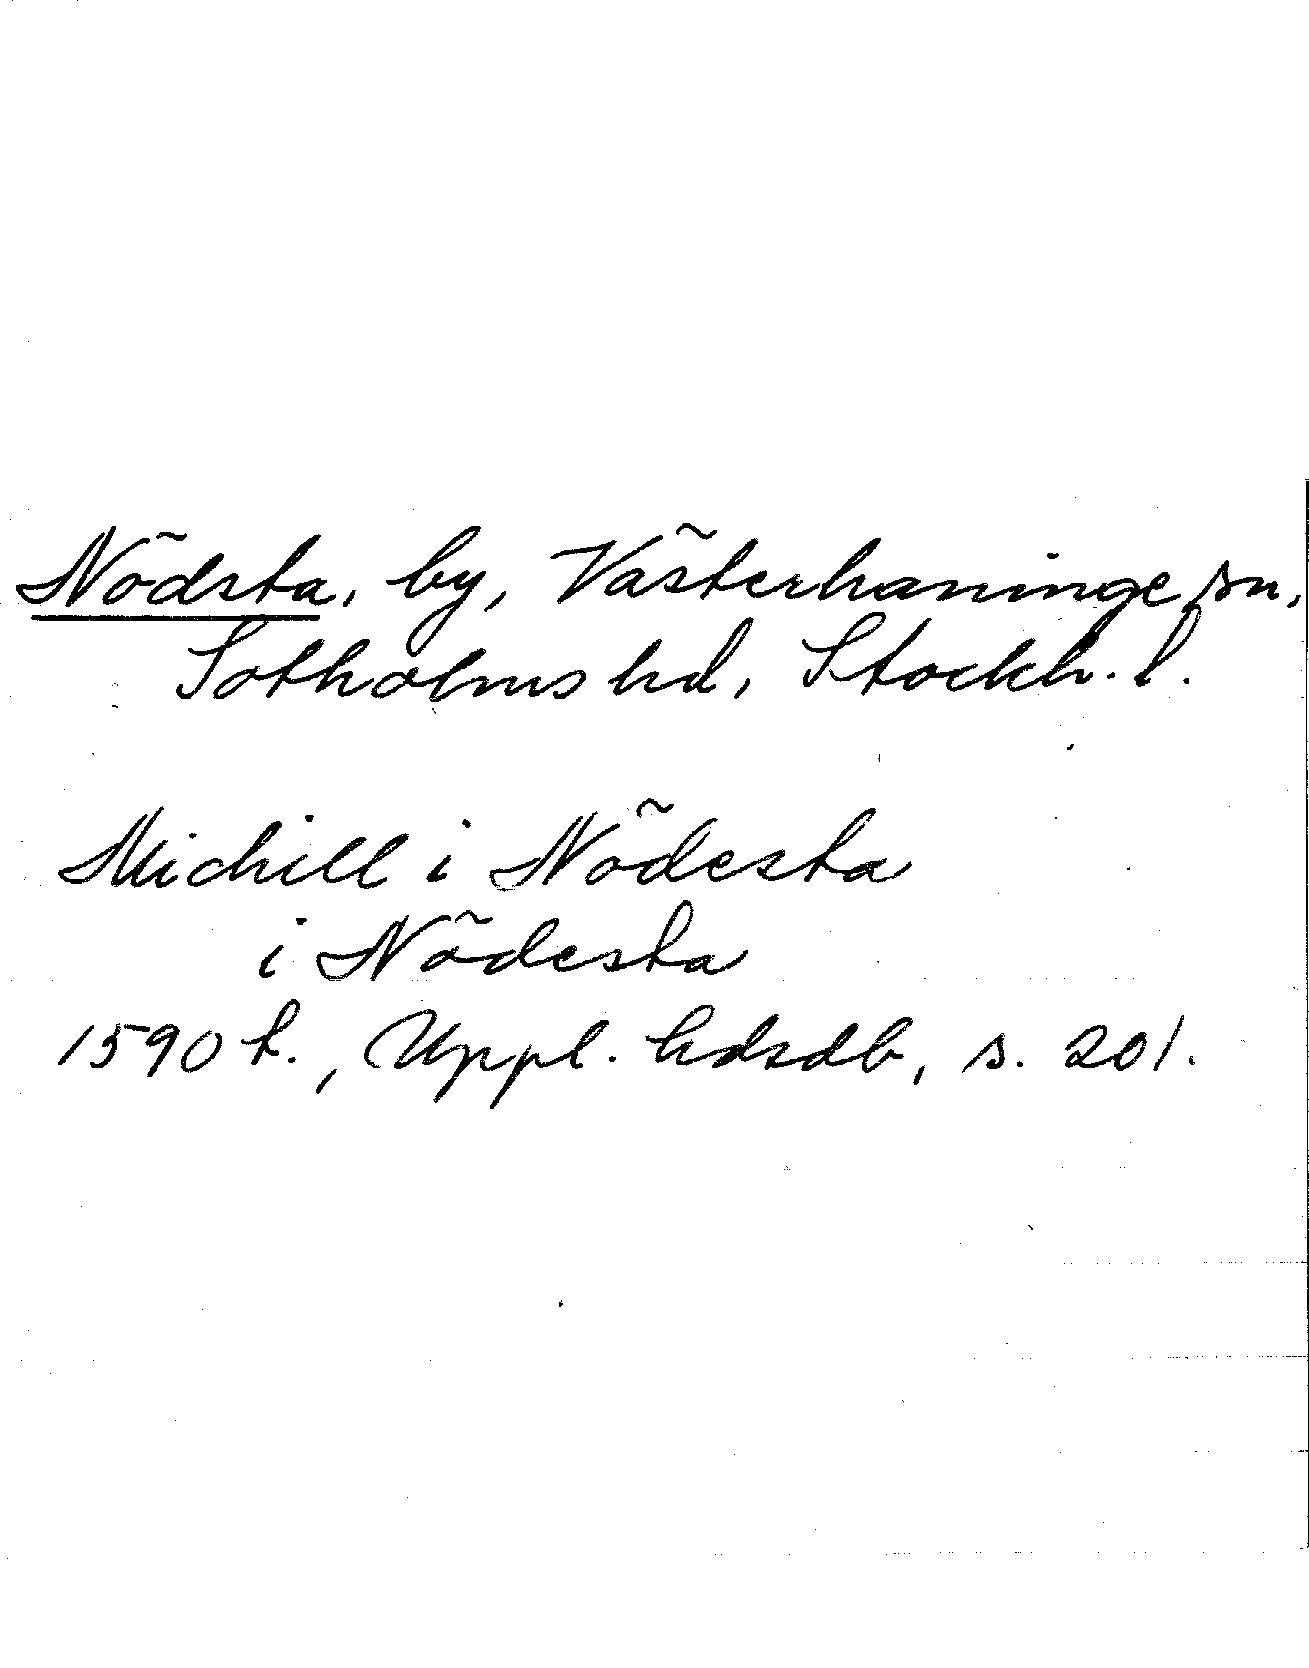 Nödsta, by, Västerhaninge sn,
Sotholms hd, Stockh. l.
Michill i Nödesta
i Nödesta
1590 t., Uppl. hdsdb, s. 201.